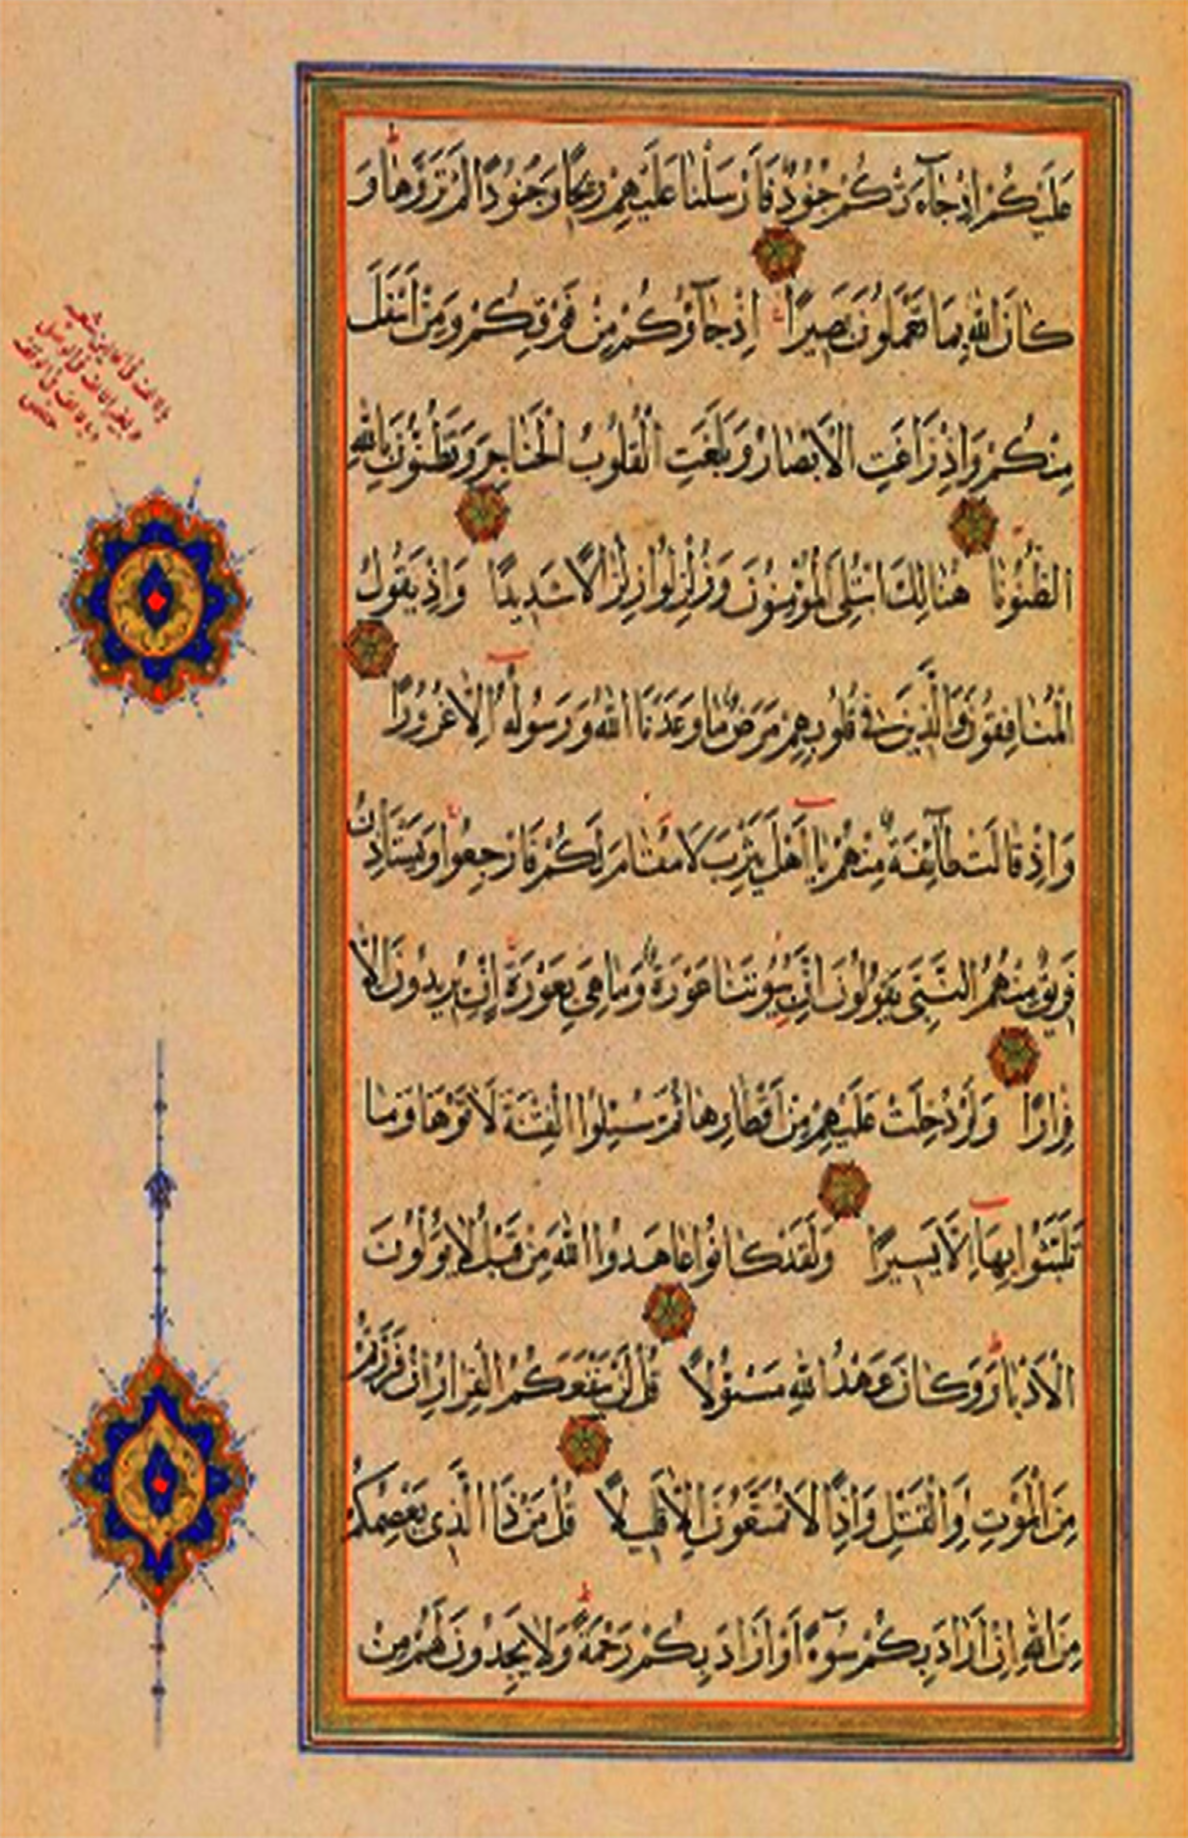 عَلَيْكُمْ اِذْ جَآءَتْكُمْ جُنُودٌ فَاَرْسَلْنَا عَلَيْهِمْ رِيحًا وَجُنُودًا لَمْ تَرَوْهَا وَ
كَانَ اللهُ بِمَا تَعْمَلُونَ بَصِيرًا اِذْ جَآؤُكُمْ مِنْ فَوْقِكُمْ وَمِنْ اَسْفَلَ
مِنْكُمْ وَاِذْ زَاغَتِ الْاَبْصَارُ وَبَلَغَتِ الْقُلُوبُ الْحَنَاجِرَ وَتَظُنُّونَ بِاللهِ
الظُّنُونَا هُنَالِكَ ابْتُلِىَ الْمُؤْمِنُونَ وَزُلْزِلُوا زِلْزَالًا شَدِيدًا وَاِذْ يَقُولُ
الْمُنَافِقُونَ وَالَّذِينَ فِى قُلُوبِهِمْ مَرَضٌ مَا وَعَدَنَا اللهُ وَرَسُولُهُ اِلَّا غُرُورًا
وَاِذْ قَالَتْ طَآئِفَةٌ مِنْهُمْ يَآ اَهْلَ يَثْرِبَ لَا مُقَامَ لَكُمْ فَارْجِعُوا وَيَسْتَأْذِنُ
فَرِيقٌ مِنْهُمُ النَّبِىَّ يَقُولُونَ اِنَّ بُيُوتَنَا عَوْرَةٌ وَمَا هِىَ بِعَوْرَةٍ اِنْ يُرِيدُونَ اِلَّا
فِرَارًا وَلَوْ دُخِلَتْ عَلَيْهِمْ مِنْ اَقْطَارِهَا ثُمَّ سُئِلُوا الْفِتْنَةَ لَاٰتَوْهَا وَمَا
تَلَبَّثُوا بِهَآ اِلَّا يَسِيرًا وَلَقَدْ كَانُوا عَاهَدُوا اللهَ مِنْ قَبْلُ لَا يُوَلُّونَ
الْاَدْبَارَ وَكَانَ عَهْدُ اللهِ مَسْئُولًا قُلْ لَنْ يَنْفَعَكُمُ الْفِرَارُ اِنْ فَرَرْتُمْ
مِنَ الْمَوْتِ اَوِ الْقَتْلِ وَاِذًا لَا تُمَتَّعُونَ اِلَّا قَلِيلًا قُلْ مَنْ ذَا الَّذِى يَعْصِمُكُمْ
مِنَ اللهِ اِنْ اَرَادَ بِكُمْ سُوٓءًا اَوْ اَرَادَ بِكُمْ رَحْمَةً وَلَا يَجِدُونَ لَهُمْ مِنْ